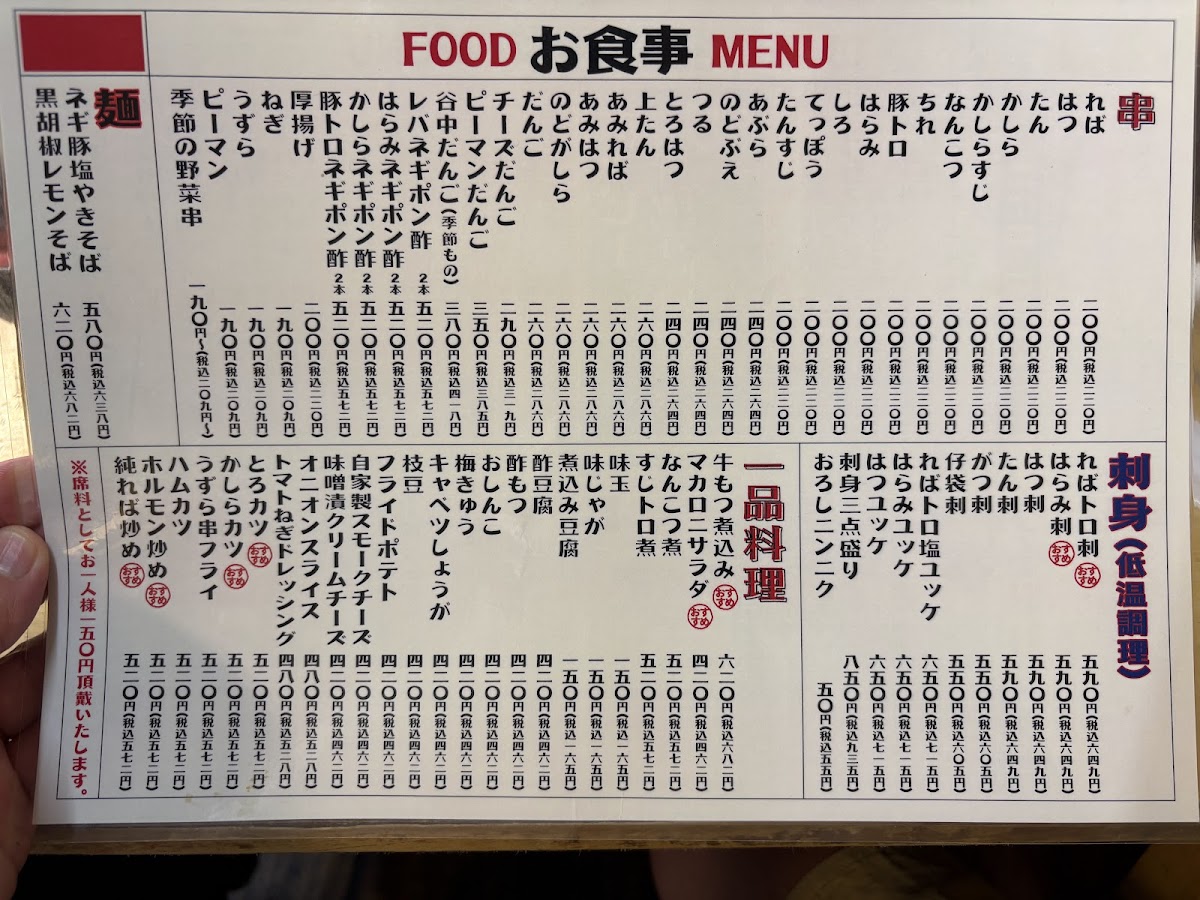 FOOD お食事 MENU
串
れば 二〇〇円(税込二二〇円)
はつ 二〇〇円(税込二二〇円)
たん 二〇〇円(税込二二〇円)
かしら 二〇〇円(税込二二〇円)
かしらすじ 二〇〇円(税込二二〇円)
なんこつ 二〇〇円(税込二二〇円)
ちれ 二〇〇円(税込二二〇円)
豚トロ 二〇〇円(税込二二〇円)
はらみ 二〇〇円(税込二二〇円)
しろ 二〇〇円(税込二二〇円)
てっぽう 二〇〇円(税込二二〇円)
たんすじ 二〇〇円(税込二二〇円)
あぶら 二四〇円(税込二六四円)
のどぶえ 二四〇円(税込二六四円)
つる 二四〇円(税込二六四円)
とろはつ 二四〇円(税込二六四円)
上たん 二六〇円(税込二八六円)
あみれば 二六〇円(税込二八六円)
あみはつ 二六〇円(税込二八六円)
のどがしら 二六〇円(税込二八六円)
だんご 二六〇円(税込二八六円)
チーズだんご 二九〇円(税込三一九円)
ピーマンだんご 三五〇円(税込三八五円)
谷中だんご(季節もの) 三八〇円(税込四一八円)
レバネギポン酢 2本 五二〇円(税込五七二円)
はらみネギポン酢 2本 五二〇円(税込五七二円)
かしらネギポン酢 2本 五二〇円(税込五七二円)
豚トロネギポン酢 2本 五二〇円(税込五七二円)
厚揚げ 二〇〇円(税込二二〇円)
ねぎ 一九〇円(税込二〇九円)
うずら 一九〇円(税込二〇九円)
ピーマン 一九〇円(税込二〇九円)
季節の野菜串 一九〇円〜(税込二〇九円〜)
麺
ネギ豚塩やきそば 五八〇円(税込六三八円)
黒胡椒レモンそば 六二〇円(税込六八二円)
刺身(低温調理)
ればトロ刺 おすすめ 五九〇円(税込六四九円)
はらみ刺 おすすめ 五九〇円(税込六四九円)
はつ刺 五九〇円(税込六四九円)
たん刺 五九〇円(税込六四九円)
がつ刺 五五〇円(税込六〇五円)
仔袋刺 五五〇円(税込六〇五円)
ればトロ塩ユッケ 六五〇円(税込七一五円)
はらみユッケ 六五〇円(税込七一五円)
はつユッケ 六五〇円(税込七一五円)
刺身三点盛り 八五〇円(税込九三五円)
おろしニンニク 五〇円(税込五五円)
一品料理
牛もつ煮込み おすすめ 六二〇円(税込六八二円)
マカロニサラダ おすすめ 四二〇円(税込四六二円)
なんこつ煮 五二〇円(税込五七二円)
すじトロ煮 五二〇円(税込五七二円)
味玉 一五〇円(税込一六五円)
味じゃが 一五〇円(税込一六五円)
煮込み豆腐 一五〇円(税込一六五円)
酢豆腐 四二〇円(税込四六二円)
酢もつ 四二〇円(税込四六二円)
おしんこ 四二〇円(税込四六二円)
梅きゅう 四二〇円(税込四六二円)
キャベツしょうが 四二〇円(税込四六二円)
枝豆 四二〇円(税込四六二円)
フライドポテト 四二〇円(税込四六二円)
自家製スモークチーズ 四二〇円(税込四六二円)
味噌漬クリームチーズ 四二〇円(税込四六二円)
オニオンスライス 四八〇円(税込五二八円)
トマトねぎドレッシング 四八〇円(税込五二八円)
とろカツ おすすめ 五二〇円(税込五七二円)
かしらカツ おすすめ 五二〇円(税込五七二円)
うずら串フライ 五二〇円(税込五七二円)
ハムカツ 五二〇円(税込五七二円)
ホルモン炒め おすすめ 五二〇円(税込五七二円)
純れば炒め おすすめ 五二〇円(税込五七二円)
※席料としてお一人様一五〇円頂戴いたします。